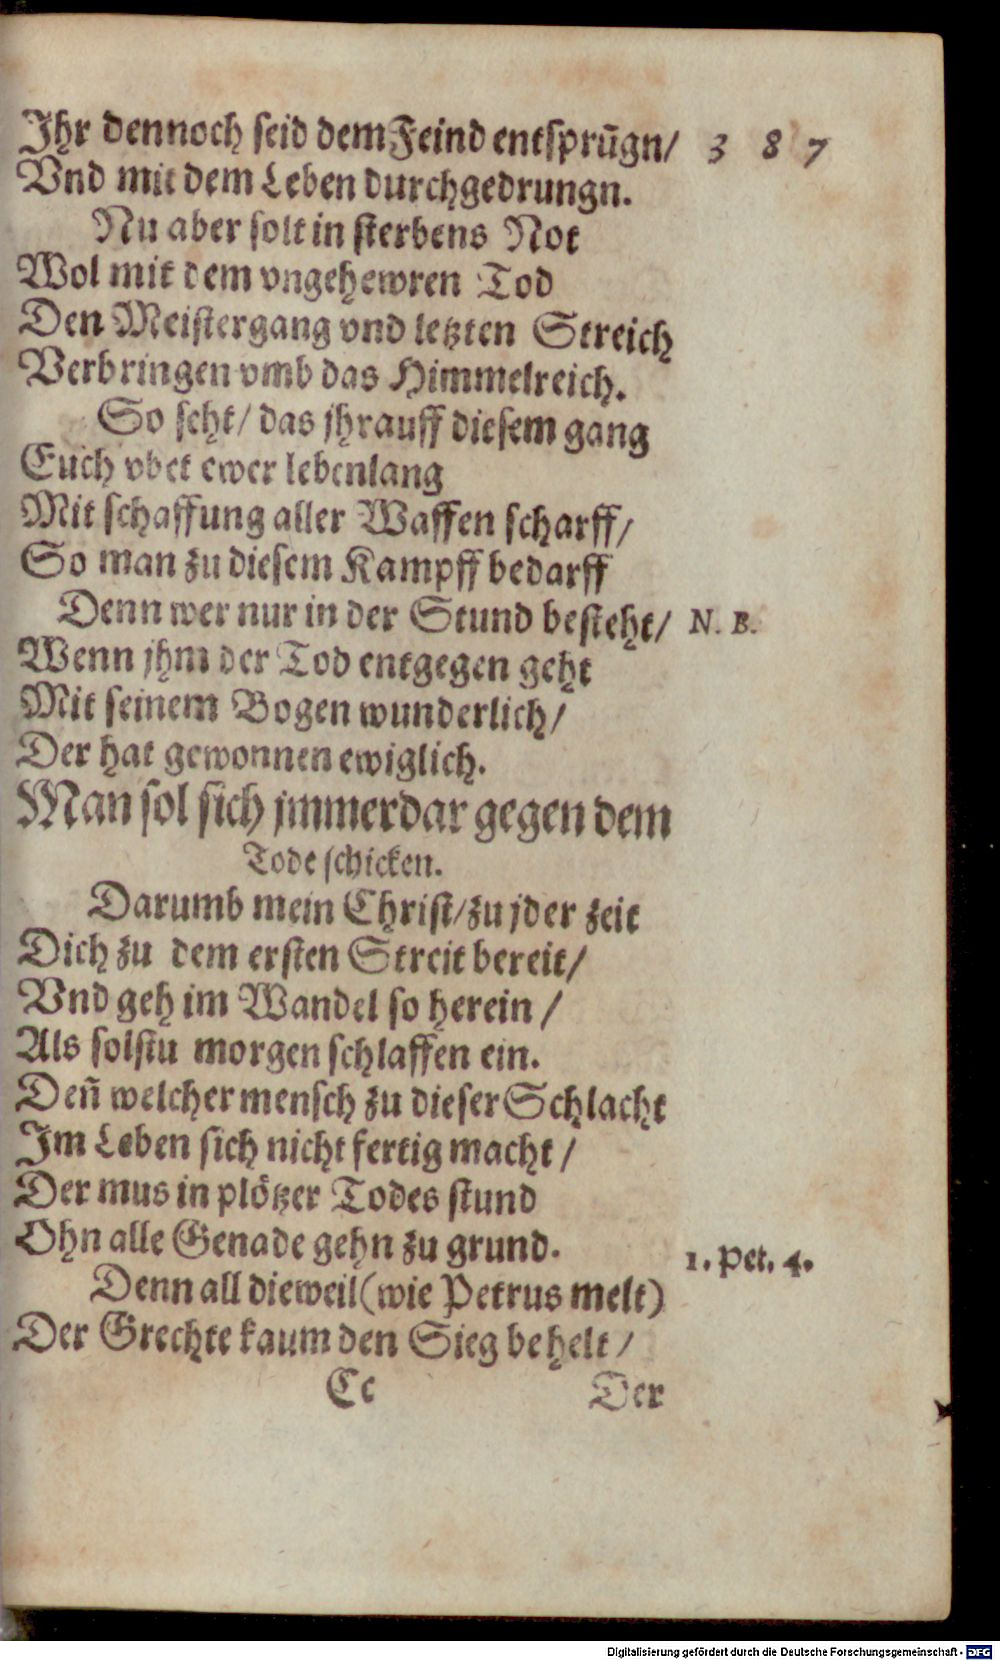 Ihr dennoch seid dem Feind entsprūgn/ 387
Vnd mit dem Leben durchgedrungn.
Nu aber solt in sterbens Not
Wol mit dem vngehewren Tod
Den Meistergang vnd letzten Streich
Verbringen vmb das Himmelreich.
So seht/ das jhr auff diesem gang
Euch vbet ewer lebenlang
Mit schaffung aller Waffen scharff/
So man zu diesem Kampff bedarff
Denn wer nur in der Stund besteht/ N. B.
Wenn jhm der Tod entgegen geht
Mit seinem Bogen wunderlich/
Der hat gewonnen ewiglich.
Man sol sich jmmerdar gegen dem
Tode schicken.
Darumb mein Christ/ zu jder zeit
Dich zu dem ersten Streit bereit/
Vnd geh im Wandel so herein/
Als solstu morgen schlaffen ein.
Deñ welcher mensch zu dieser Schlacht
Im Leben sich nicht fertig macht/
Der mus in plötzer Todes stund
Ohn alle Genade gehn zu grund.
Denn all dieweil (wie Petrus melt) 1. Pet. 4.
Der Grechte kaum den Sieg behelt/
Cc Der
Digitalisierung gefördert durch die Deutsche Forschungsgemeinschaft - DFG